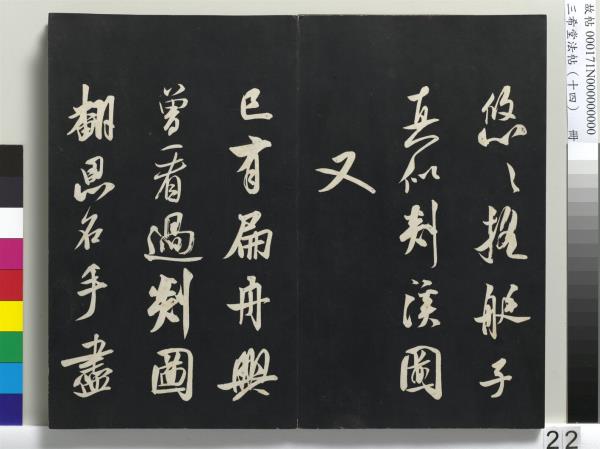 故帖 000171N000000000
三希堂法帖（十四） 冊
悠〻搖艇子
真似剡溪圖
又
已有扁舟興
曾看過剡圖
翻思名手盡
22